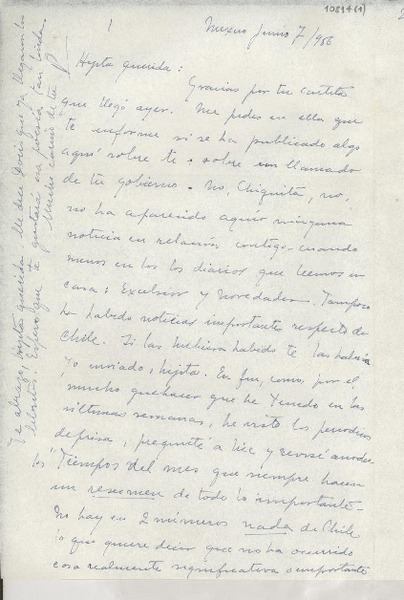 10814(1)
1
Mexico Junio 7/956
Hijita querida:
Gracias por tu cartita
que llegó ayer. Me pides en ella que
te informe si se ha publicado algo
aquí sobre ti o sobre un llamado
de tu gobierno. No, Chiquita, no,
no ha aparecido aquí ninguna
noticia en relación contigo cuando
menos en los dos diarios que leemos en
casa: Excelsior y Novedades. Tampoco
ha habido noticias importantes respecto de
Chile. Si las hubiera habido te las habría
yo enviado, hijita. En fin, como, por el
mucho quehacer que he tenido en las
últimas semanas, he visto los periódicos
de prisa, pregunté a y revisé anoche
los "Tiempos" del mes que siempre hacen
un resumen de todo lo importante.
No hay en 2 números nada de Chile
o que quiere decir que no ha ocurrido
cosa realmente significativa o importante
Te abraza, hijita querida. Me dice Doris que ya llegaron los
libritos. Espero que te gustará esa poesía tan linda.
Mucho cariño de tu P